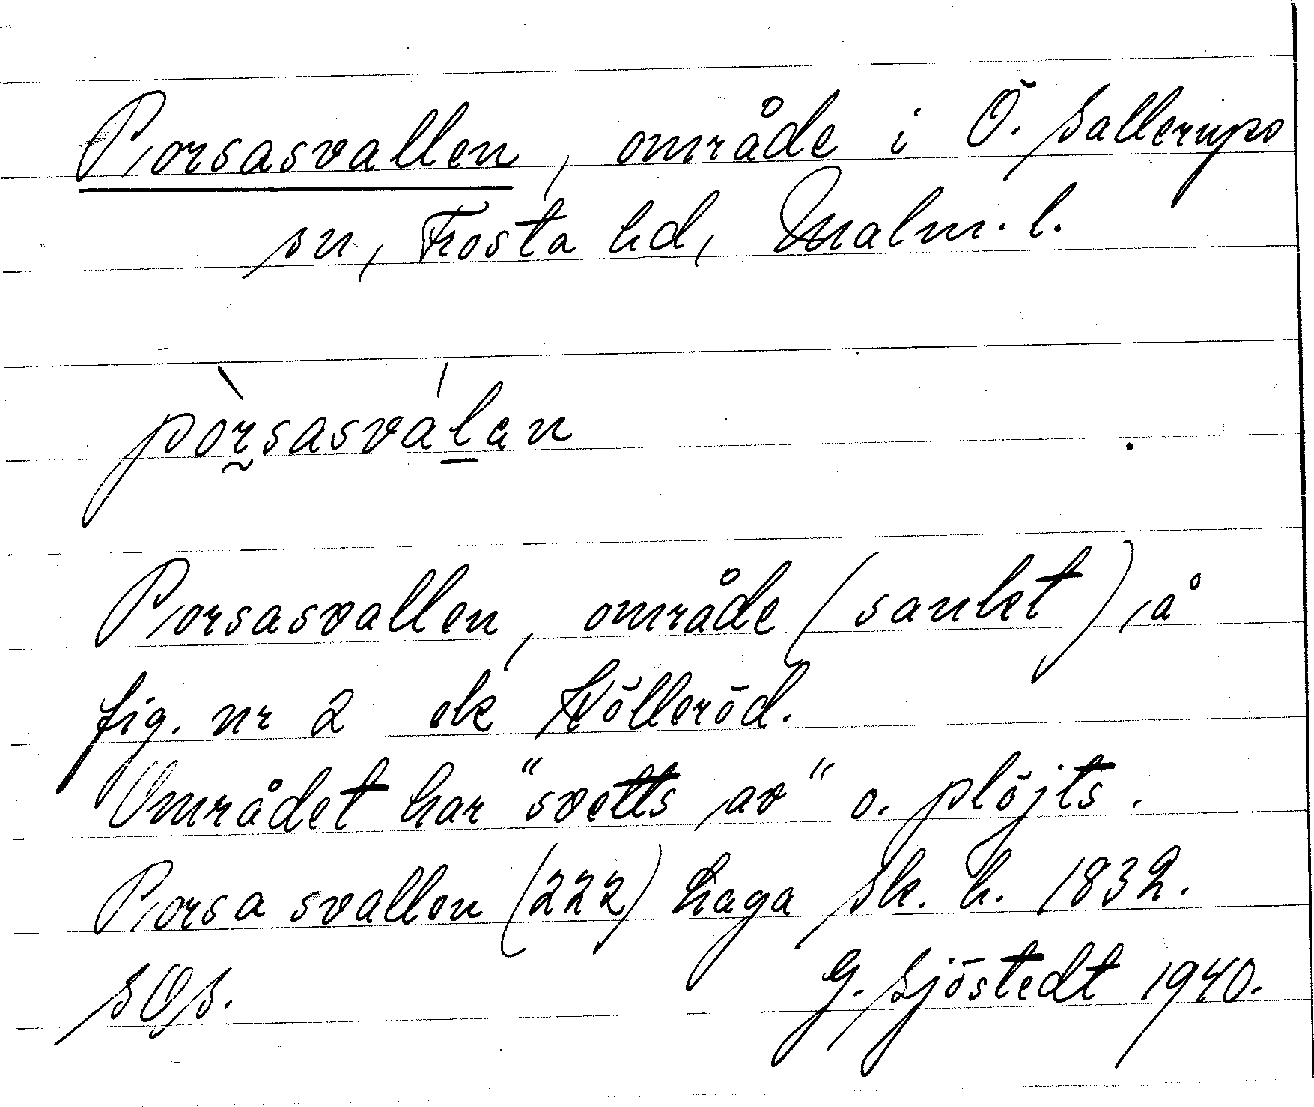 Porsasvallen, område i Ö. Sallerups
sn, Frosta hd, Malm. l.
pòr̰sasváḻan
Porsasvallen, område (sankt), å
fig. nr 2 ek Hölleröd.
Området har "svetts av" o. plöjts.
Porsa svallen (222) haga sk. k. 1832.
SOs.
G. Sjöstedt 1940.